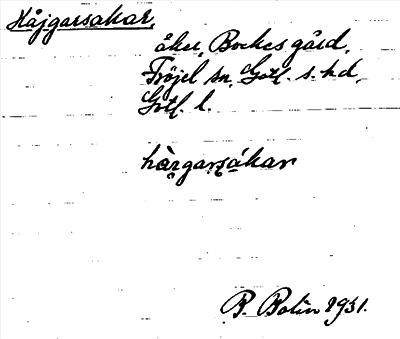 Håjgarsakar,
åker, Bockes gård,
Fröjel sn, Gotl. s. hd,
Gotl. l.
hàrgarsákar
B. Bolin 1931.